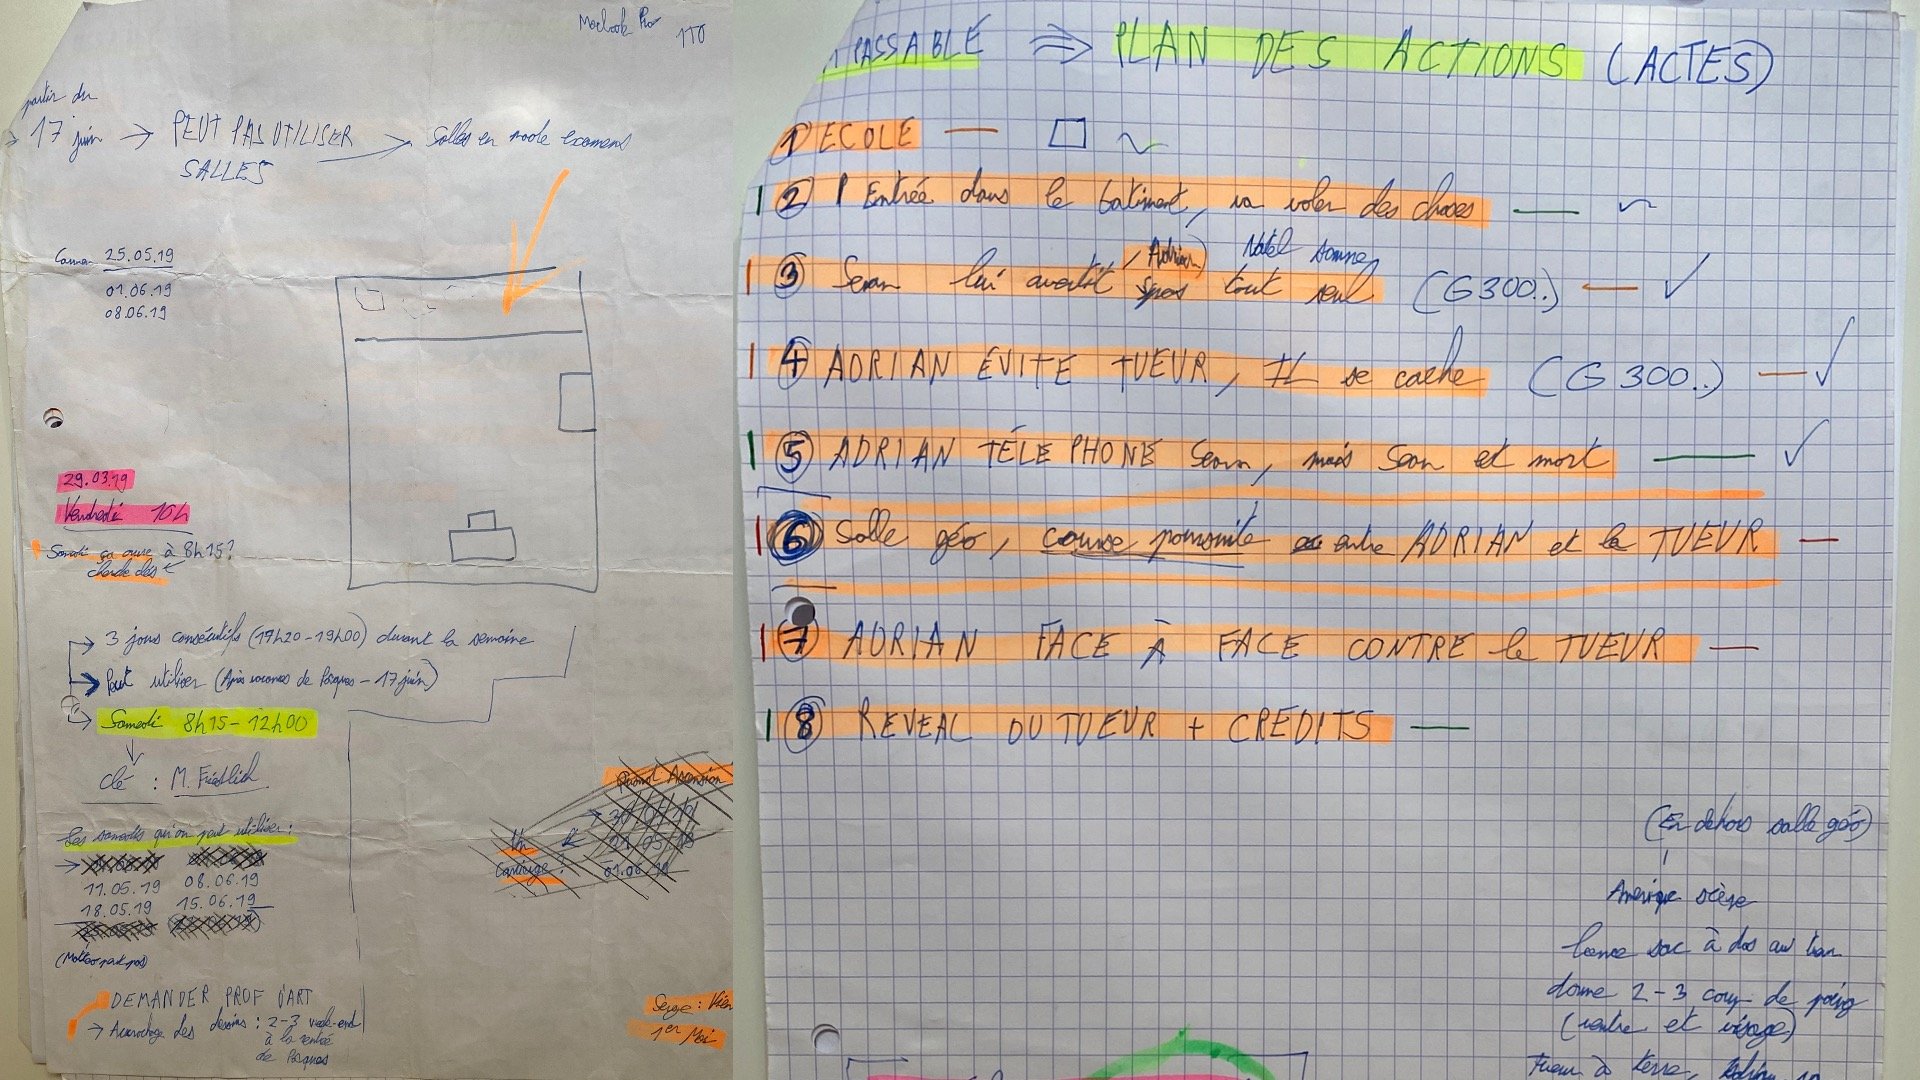 Macbook Pro 1TO
partir du
17 juin → PEUT PAS UTILISER → Salles en mode examens
SALLES
25.05.19
01.06.19
08.06.19
29.03.19
Vendredi 10h
Samedi ça ouvre à 8h15?
→ 3 jours consécutifs (17h20-19h00) durant la semaine
→ Peut utiliser (Après vacances de Pâques - 17 juin)
→ Samedi 8h15-12h00
clé : M.
Les samedis qu'on peut utiliser:
11.05.19 08.06.19
18.05.19 15.06.19
Ascension
01.06.19
DEMANDER PROF D'ART
→ Accrochage des dessins : 2-3 week-end
à la rentrée
de Pâques
Serge : Vien
1er Mai
PASSABLE ⇒ PLAN DES ACTIONS (ACTES)
1 ECOLE —
2 Entrée dans le batiment, va voler des choses —
, Adrian) Natel sonne
3 Sean lui avertit tout seul (G300..) — ✓
4 ADRIAN ÉVITE TUEUR, IL se cache (G300..) — ✓
5 ADRIAN TÉLÉPHONE Sean, mais Sean et mort — ✓
6 Salle géo, course poursuite entre ADRIAN et le TUEUR —
7 ADRIAN FACE À FACE CONTRE le TUEUR —
8 REVEAL DU TUEUR + CREDITS —
(En dehors salle géo)
lance sac à dos au
donne 2-3 coup de poing
(ventre et visage)
Tueur à terre,